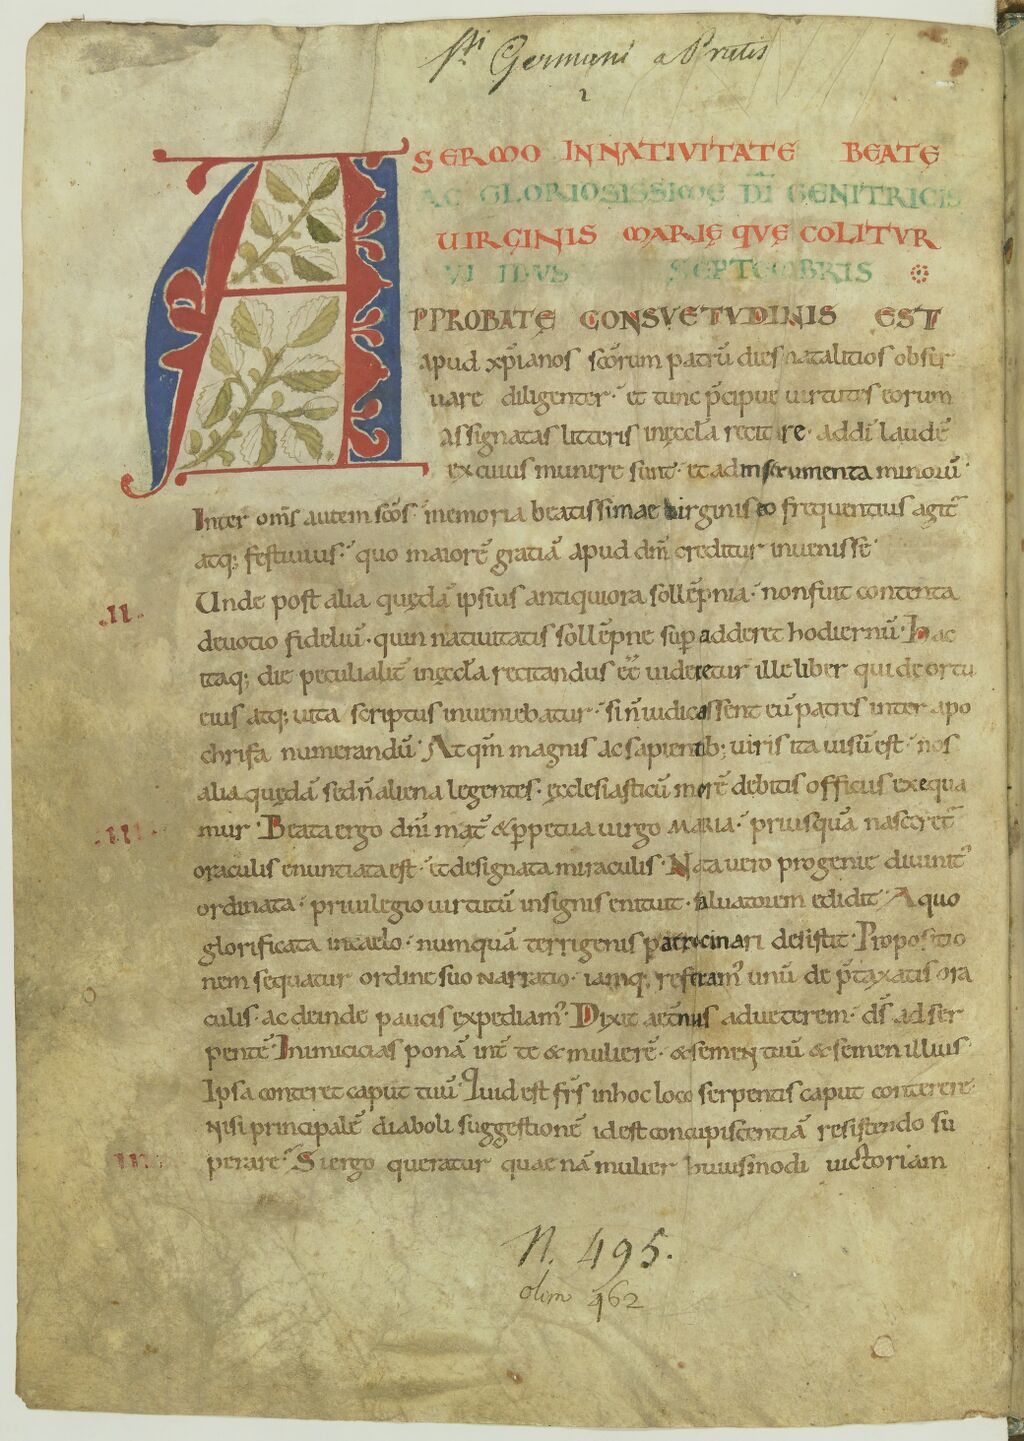 Sti Germani a Pratis
1
SERMO IN NATIVITATE BEATE
AC GLORIOSISSIME DI GENITRICIS
UIRGINIS MARIĘ QVĘ COLITVR
VI IDUS SEPTEMBRIS
APPROBATĘ CONSVETVDINIS EST
apud xp̄ianos sc̄orum patrū dies natalitios obser
uare diligenter · et tunc p̄cipue uirtutes eorum
assignatas litteris in ęccl̄a recitare · addi laudē
ex cuius munere sunt · et ad instrumenta minorū ·
Inter om̄s autem sc̄os · memoria beatissimae uirginis eo frequentius agit᷑
atq; festiuius · quo maiorē gratiā apud dm̄ creditur inuenisse
.II. Unde post alia quędā ipsius antiquiora sollēpnia · non fuit contenta
deuotio fideliū · quin natiuitatis sollēpne sup̱adderet hodiernū · Hac
itaq; die peculialit᷑ in ęccl̄a recitandus eē uideretur ille liber qui de ortu
eius atq; uita scriptus inueniebatur · si n̄ iudicassent eū patres inter apo
chrifa numerandū · At qm̄ magnis ac sapientib; uiris ita uisū est · nos
alia quędā sed n̄ aliena legentes · ęcclesiasticū morē debitis officiis exequa
.III. mur · Beata ergo dn̄i mat᷑ & p̱petua uirgo MARIA · priusquā nasceret᷑
oraculis enuntiata est · et designata miraculis · Nata uero progenie diuinit᷑
ordinata · priuilegio uirtutū insignis enituit · saluatorem edidit · A quo
glorificata in caelo · numquā terrigenis patrocinari desistit · Propositio
nem sequatur ordine suo narratio · iamq; referam᷒ unū de p̄taxatis ora
culis · ac deinde paucis expediam᷒ · Dixit aet̄nus ad ueterem · ds̄ ad ser
pentē · Inimicicias ponā int᷑ te & mulierē · & semen tuū & semen illius
Ipsa conteret caput tuū · Quid est fr̄s in hoc loco serpentis caput conterere
nisi principalē diaboli suggestionē id est concupiscentiā resistendo su
perare · Si ergo queratur quaenā mulier huiusmodi uictoriam
N. 495.
olim 462